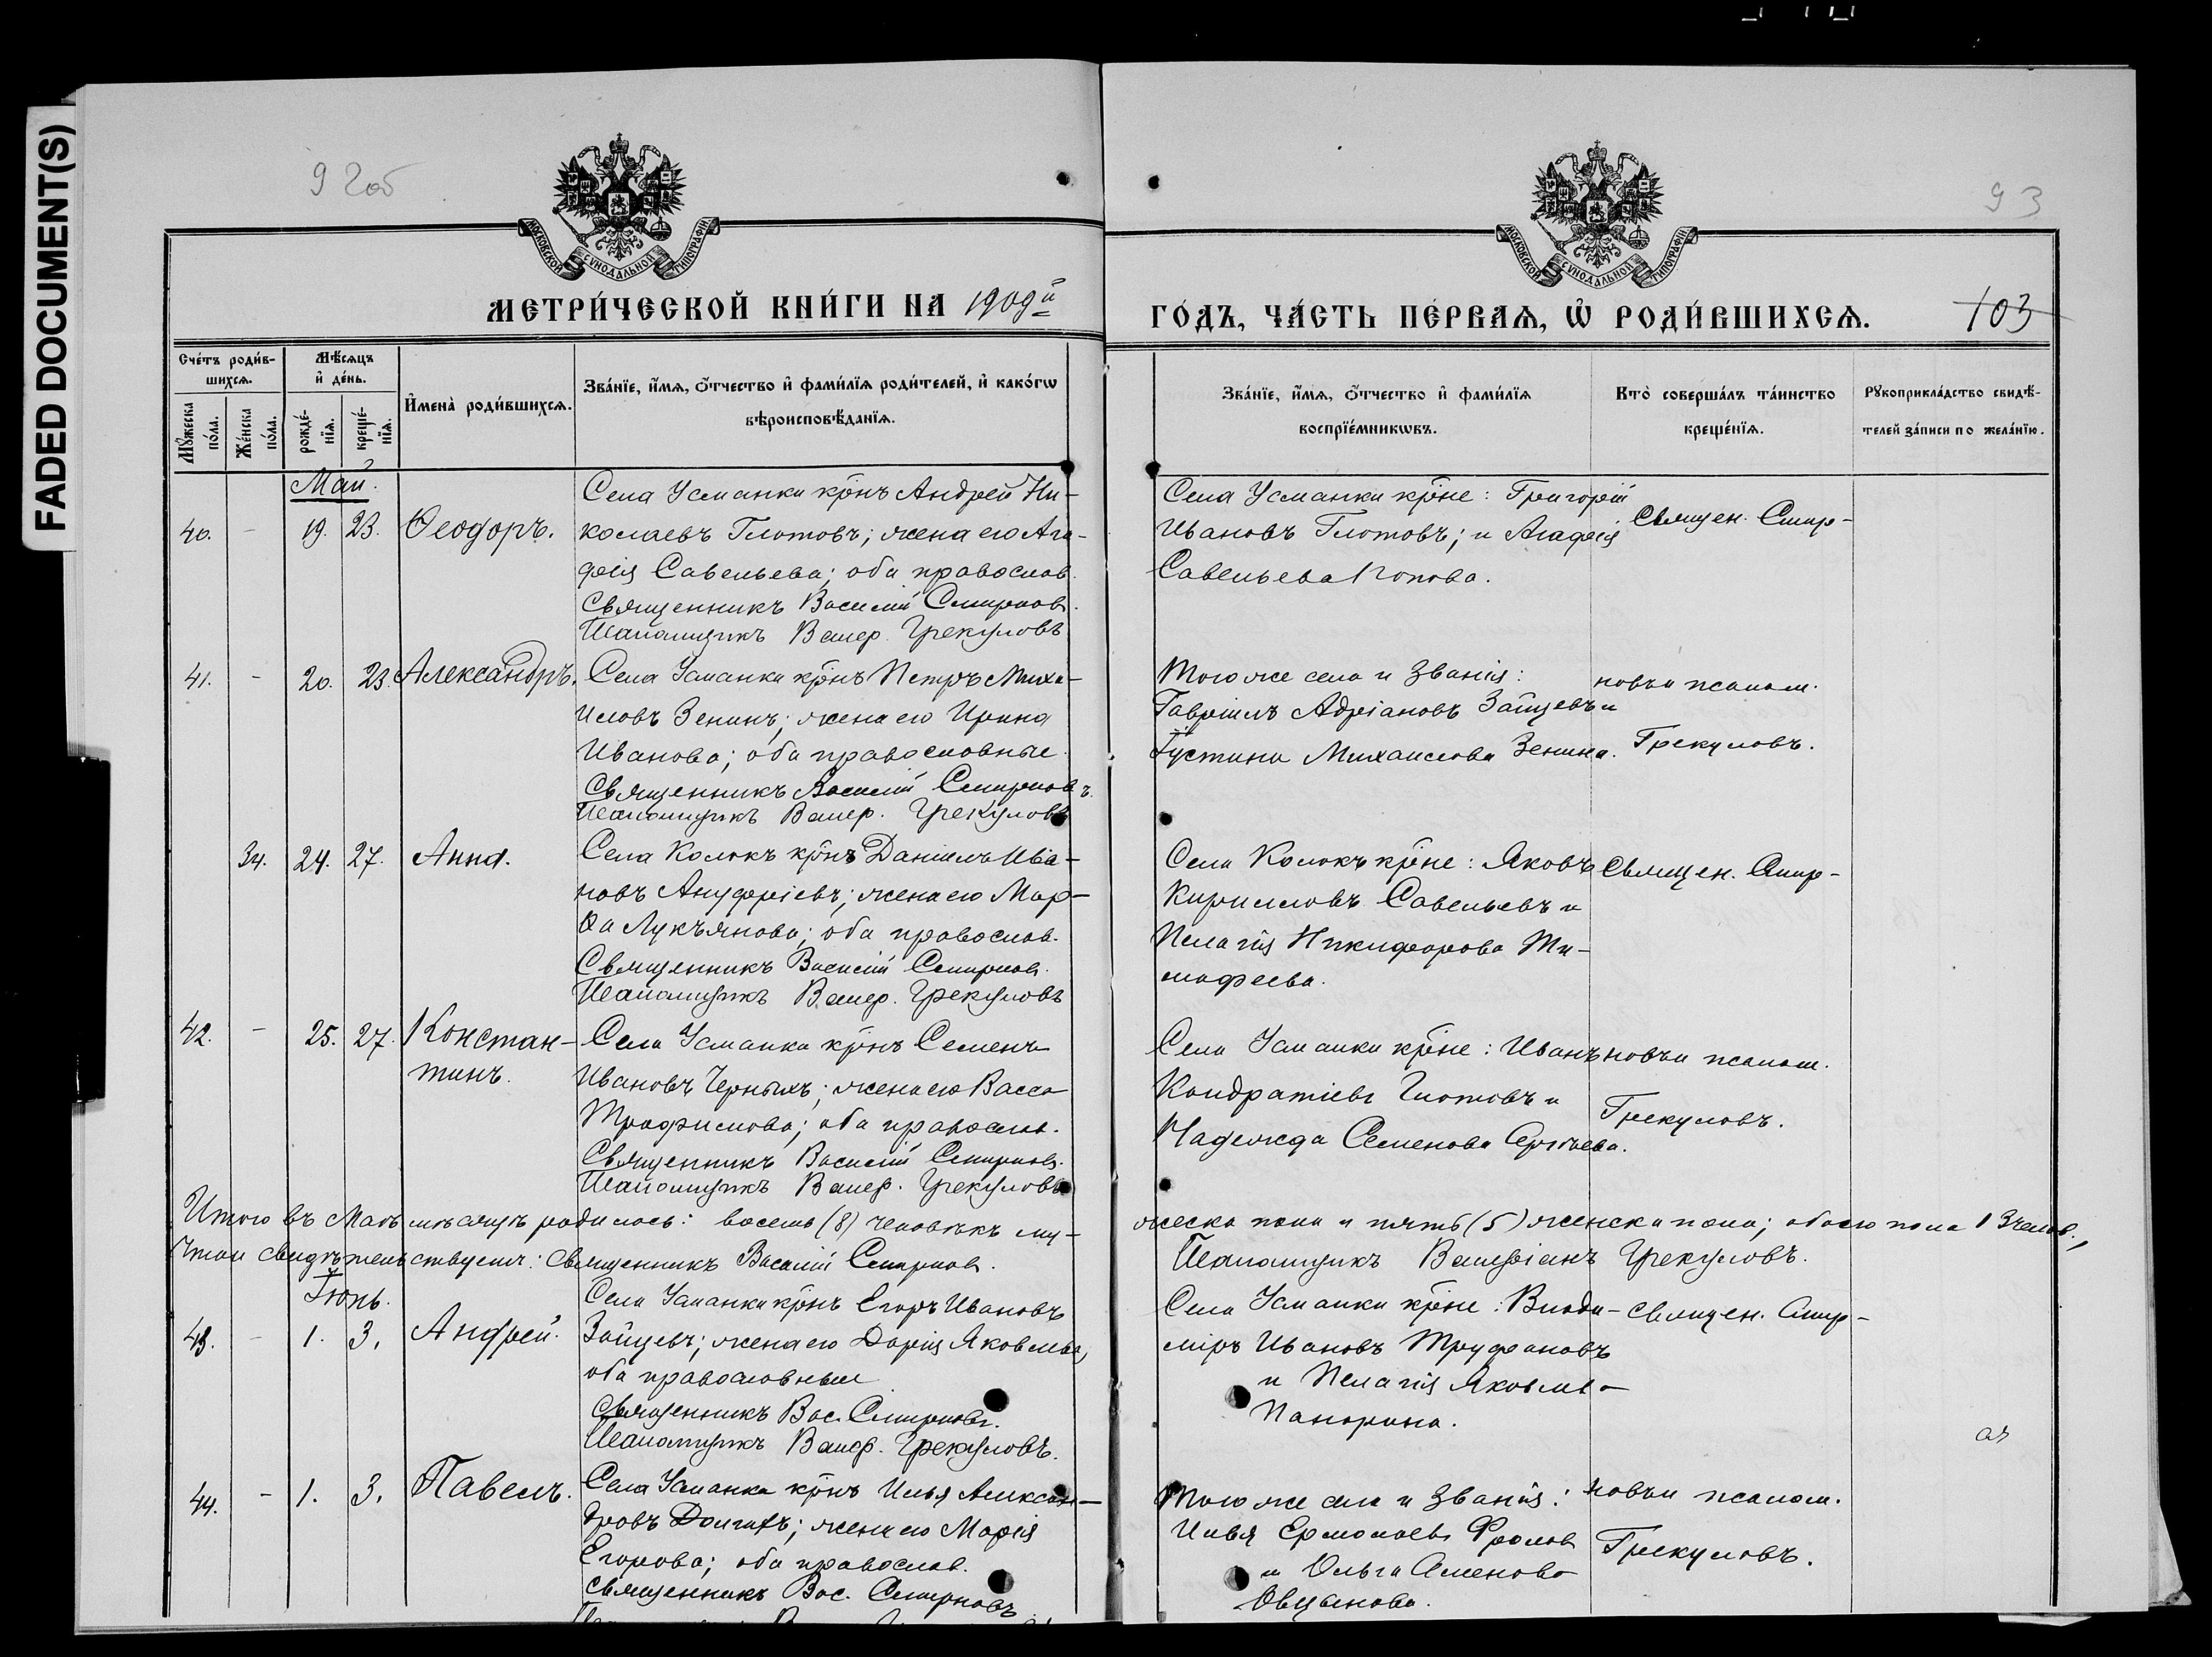 FADED DOCUMENT(S)
92об
93
МОСКОВСКОЙ СУНОДАЛЬНОЙ ТИПОГРАФІИ
МОСКОВСКОЙ СУНОДАЛЬНОЙ ТИПОГРАФІИ
МЕТРИ́ЧЕСКОЙ КНИ́ГИ НА 1909й
ГО́ДЪ, ЧА́СТЬ ПЕ́РВАѦ, Ѡ҆ РОДИ́ВШИХСѦ.
103
Сче́тъ роди́в-
шихсѧ.
Мꙋ́жеска по́ла.
Же́нска по́ла.
Мѣ́сѧцъ
и҆ де́нь.
рожде́-нїѧ.
креще́-нїѧ.
И҆мена̀ роди́вшихсѧ.
Зва́нїе, и҆́мѧ, ѻ҆́тчество и҆ фами́лїѧ роди́телей, и҆ како́гѡ
вѣроисповѣ́данїѧ.
Зва́нїе, и҆́мѧ, ѻ҆́тчество и҆ фами́лїѧ
воспрїе́мникѡвъ.
Кто̀ соверша́лъ та́инство
креще́нїѧ.
Рꙋкоприкла́дство свидѣ́-
телей за́писи по жела́нїю.
Май.
40. - 19. 23. Ѳеодоръ.
Села Усманки крнъ Андрей Ни-
колаевъ Глотовъ; жена его Ага-
фія Савельева; оба православ.
Священникъ Василій Смирновъ.
Псаломщикъ Валер. Грекуловъ
Села Усманки крне: Григорій
Ивановъ Глотовъ; и Агафія
Савельева Попова.
Священ. Смир-
41. - 20. 23. Александръ.
Села Усманки крнъ Петръ Миха-
иловъ Зенинъ; жена его Ирина
Иванова; оба православные.
Священникъ Василій Смирновъ.
Псаломщикъ Валер. Грекуловъ
Того же села и званія:
Гавріилъ Адріановъ Зайцевъ и
Іустина Михаилова Зенина.
новъ и псалом.
Грекуловъ.
34. 24. 27. Анна.
Села Колокъ крнъ Даніилъ Ива-
новъ Ануфріевъ; жена его Мар-
ѳа Лукъянова; оба православ.
Священникъ Василій Смирновъ.
Псаломщикъ Валер. Грекуловъ
Села Колокъ крне: Яковъ
Кирилловъ Савельевъ и
Пелагія Никифорова Ти-
мофеева.
Священ. Смир-
42. - 25. 27. Констан-
тинъ.
Села Усманки крнъ Семенъ
Ивановъ Черныхъ; жена его Васса
Трофимова; оба православ.
Священникъ Василій Смирновъ.
Псаломщикъ Валер. Грекуловъ
Села Усманки крне: Иванъ
Кондратіевъ Глотовъ и
Надежда Семенова Сергѣева.
новъ и псалом.
Грекуловъ.
Итого въ Маѣ мѣсяцѣ родилось: восемь (8) человѣкъ му-
жеска пола и пять (5) женска пола; обоего пола 13 челов.,
Въ чемъ свидѣтельствуемъ: Священникъ Василій Смирновъ.
Псаломщикъ Валеріанъ Грекуловъ.
Іюнь.
43. - 1. 3. Андрей.
Села Усманки крнъ Егоръ Ивановъ
Зайцевъ; жена его Дарія Яковлева,
оба православные
Священникъ Вас. Смирновъ.
Псаломщикъ Валер. Грекуловъ.
Села Усманки крне: Влади-
міръ Ивановъ Труфановъ
и Пелагія Яковлева
Панарина.
Священ. Смир-
44. - 1. 3. Павелъ.
Села Усманки крнъ Илья Алексан-
дровъ Долгихъ; жена его Марія
Егорова; оба православ.
Священникъ Вас. Смирновъ
Того же села и званія:
Илья Ермолаевъ Фроловъ
и Ольга Семенова
Овцынова.
новъ и псалом.
Грекуловъ.